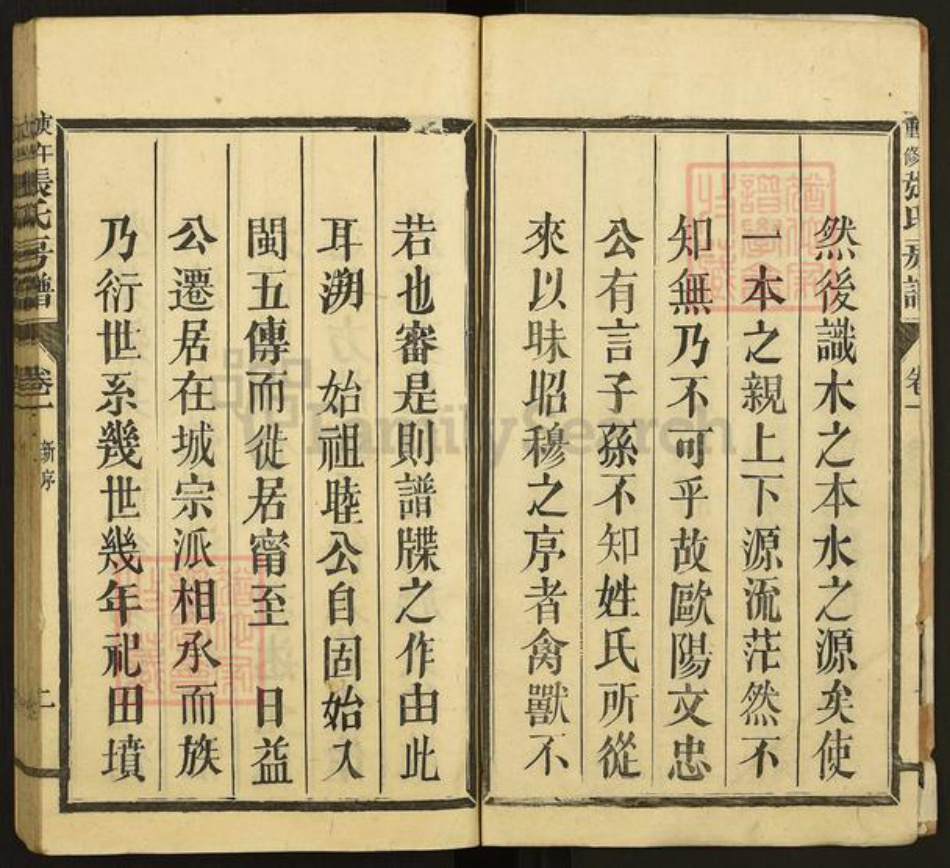 重修張氏房譜 卷一
然後識木之本水之源矣使
一本之親上下源流茫然不
知無乃不可乎故歐陽文忠
公有言子孫不知姓氏所從
來以昧昭穆之序者禽獸不
若也審是則譜牒之作由此
耳溯　始祖睦公自固始入
閩五傳而徙居甯至　日益
公遷居在城宗派相承而族
乃衍世系幾世幾年祀田墳
庚午張氏房譜 卷一 新序 二
FamilySearch